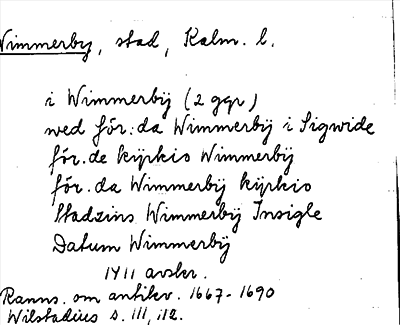 Wimmerby, stad, Kalm. l.
i Wimmerbÿ (2 ggr)
wed för:da Wimmerbÿ i Sigwide
för.de kÿrkio Wimmerbÿ
för.da Wimmerbÿ kÿrkio
Stadzins Wimmerbÿ Insigle
Datum Wimmerbÿ
1411 avskr.
Ranns. om antikv. 1667-1690
Wilstadius s. 111, 112.